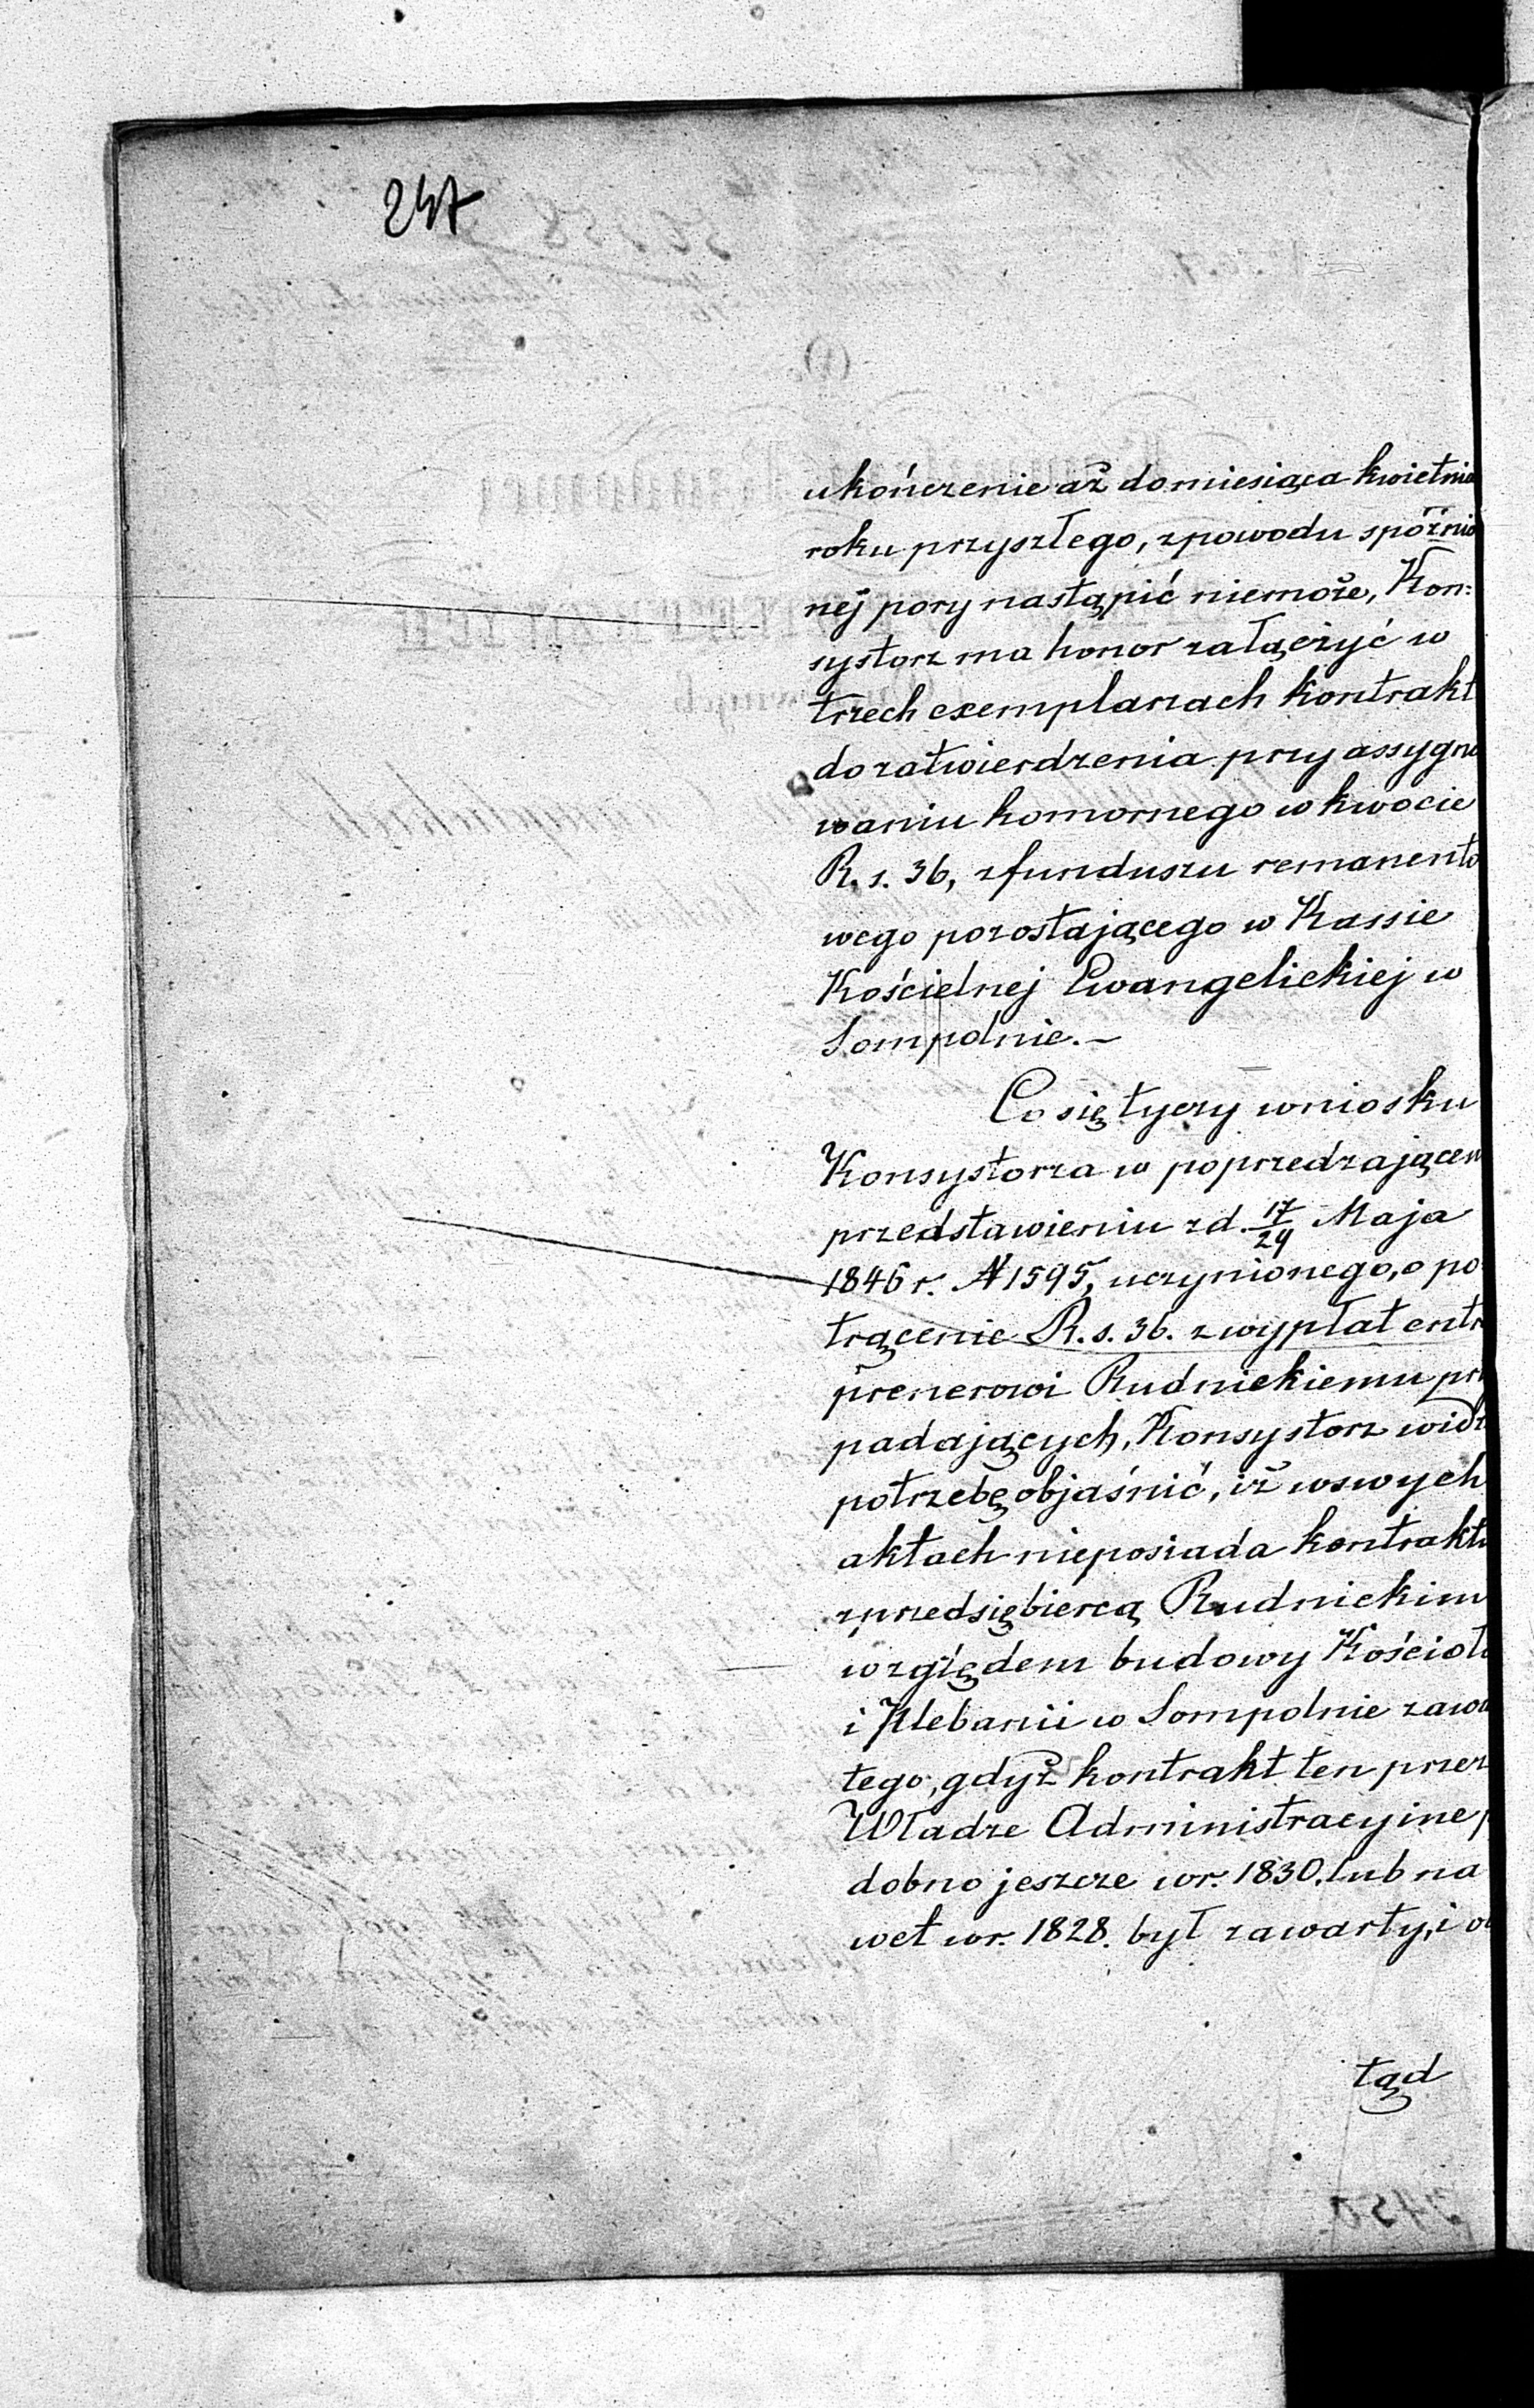 247
ukończenie aż do miesiąca kwietnia
roku przyszłego, z powodu spóźnio
nej pory nastąpić niemoże, Kon=
systorz ma honor załączyć w
trzech exemplarzach kontrakt
do zatwierdzenia przy assygno
waniu komornego w kwocie
R. s. 36, z funduszu remanento
wego pozostającego w Kassie
Kościelnej Ewangelickiej w
Sompolnie.—
Co się tyczy wniosku
Konsystorza w poprzedzającem
przedstawieniu z d. 17/29 Maja
1846 r. N 1595, uczynionego, o po
trącenie R. s. 36. z wypłat entre
prenerowi Rudnickiemu przy
padających, Konsystorz widzi
potrzebę objaśnić, iż w swych
aktach nieposiada kontraktu
z przedsiębiercą Rudnickim
względem budowy Kościoła
i Plebanii w Sompolnie zawar
tego, gdyż kontrakt ten przez
Władze Administracyine p
dobno jeszcze w r. 1830. lub na
wet w r. 1828. był zawarty, i
tąd